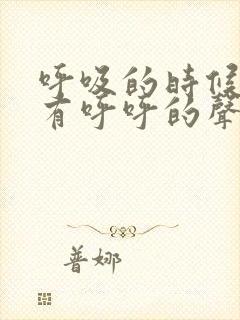 呼吸的時候
有呼呼的聲
普娜